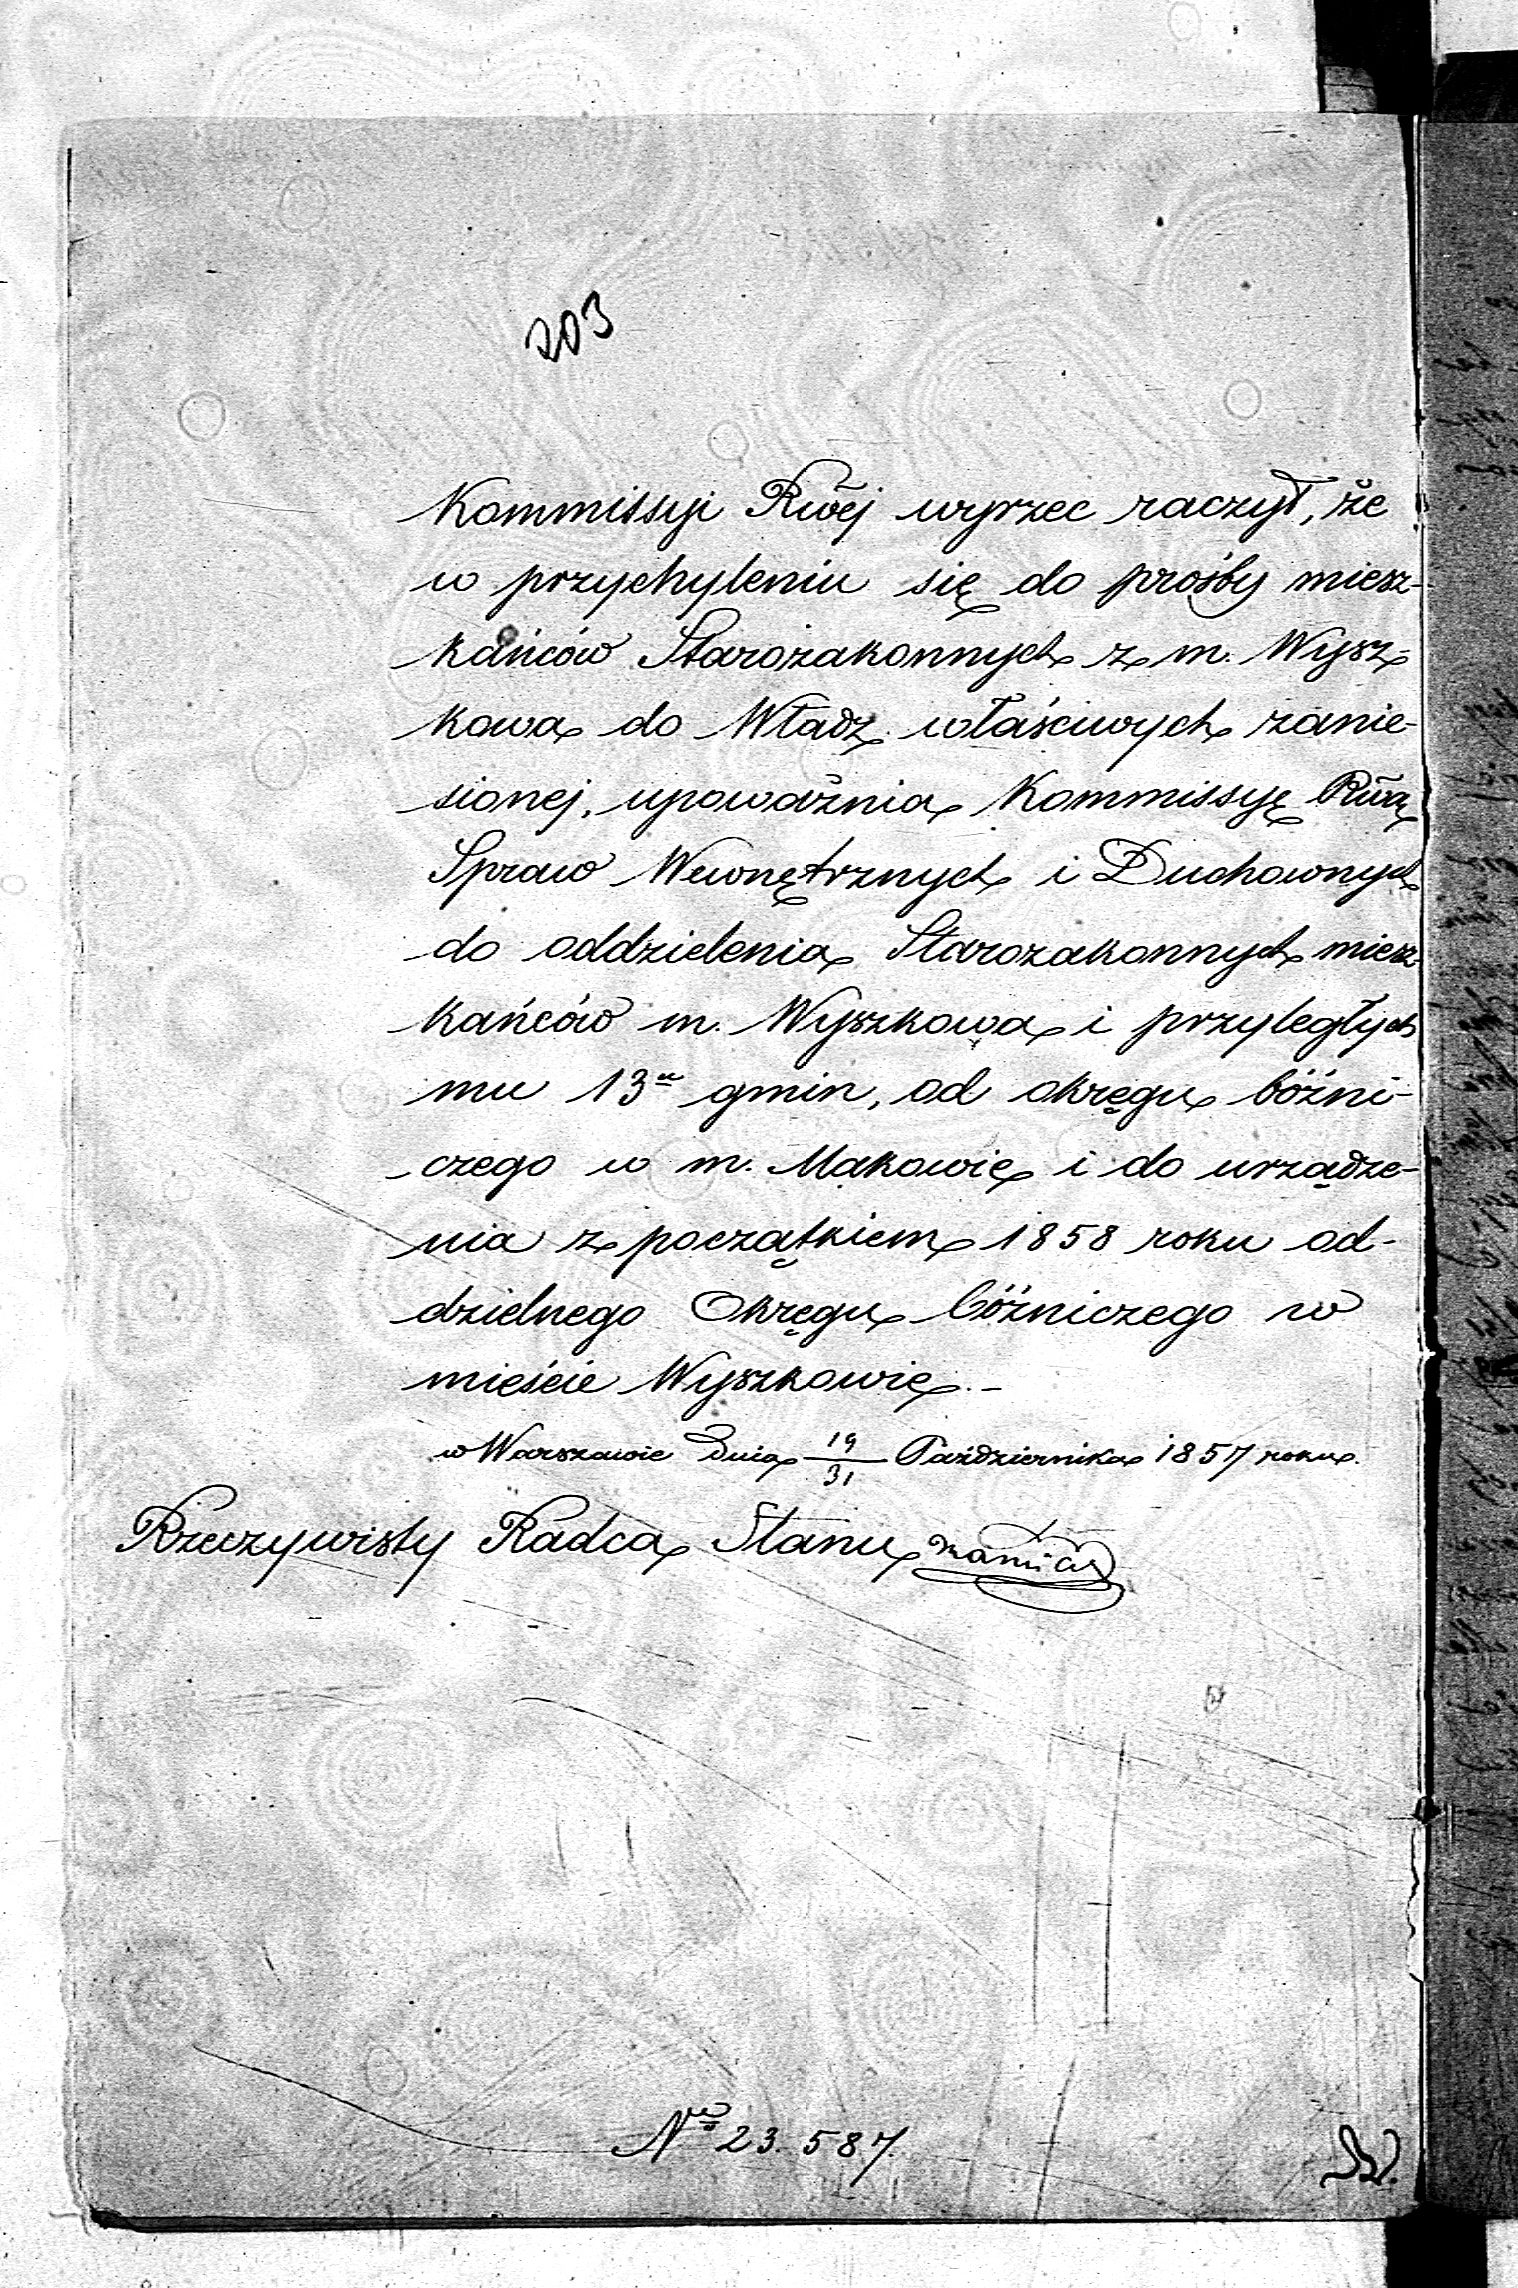 203
Kommissyi Rwej wyrzec raczył, że
w przychyleniu się do prośby miesz-
kańców Starozakonnych z m. Wysz-
kowa do Władz właściwych zanie-
sionej, upoważnia Kommissyę Rwą
Spraw Wewnętrznych i Duchownych
do oddzielenia Starozakonnych miesz-
kańców m. Wyszkowa i przyległych
mu 13u gmin, od okręgu bóźni-
czego w m. Makowie i do urządze-
nia z początkiem 1858 roku od-
dzielnego Okręgu bóźniczego w
mieście Wyszkowie.-
w Warszawie Dnia 19/31 Października 1857 roku.
Rzeczywisty Radca Stanu
No 23.587.